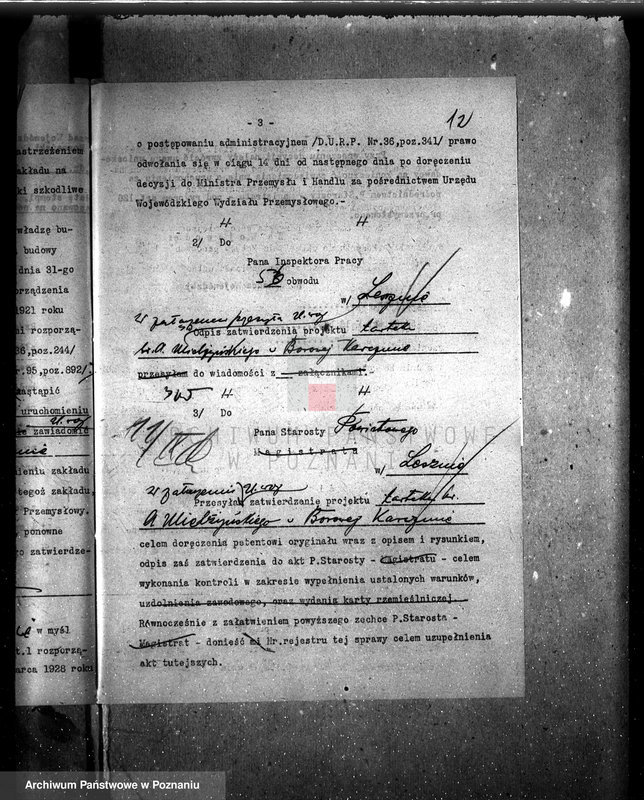 astrzeżeniem
akładu na
ki szkodliwe
władzę bu-
budowy
dnia 31-go
orządzenia
1921 roku
mi rozporzą-
36,poz.244/
r.95,poz.692/
astąpić
uruchomieniu
zawiadomić
ieniu zakładu
tegoż zakładu,
Przemysłowy.
ponowne
o zatwierdze-
w myśl
t.1 rozporzą-
arca 1928 roku
- 3 -
12
o postępowaniu administracyjnem /D.U.R.P. Nr.36,poz.341/ prawo
odwołania się w ciągu 14 dni od następnego dnia po doręczeniu
decyzji do Ministra Przemysłu i Handlu za pośrednictwem Urzędu
Wojewódzkiego Wydziału Przemysłowego.-
2/ Do
Pana Inspektora Pracy
obwodu
w/ Lesznie
Odpis zatwierdzenia projektu tartaku
br. A. Mielżyńskiego w Borowej Karczmie
przesyłam do wiadomości z załącznikami.-
3/ Do
Pana Starosty Powiatowego
Magistratu
w/ Lesznie
Przesyłam zatwierdzanie projektu tartaku br.
A Mielżyńskiego w Borowej Karczmie
celem doręczenia petentowi oryginału wraz z opisem i rysunkiem,
odpis zaś zatwierdzenia do akt P.Starosty - Magistratu - celem
wykonania kontroli w zakresie wypełnienia ustalonych warunków,
uzdolnienia zawodowego, oraz wydania karty rzemieślniczej.
Równocześnie z załatwieniem powyższego zechce P.Starosta -
Magistrat - donieść mi Nr.rejestru tej sprawy celem uzupełnienia
akt tutejszych.
ARCHIWUM PAŃSTWOWE
W POZNANIU
Archiwum Państwowe w Poznaniu